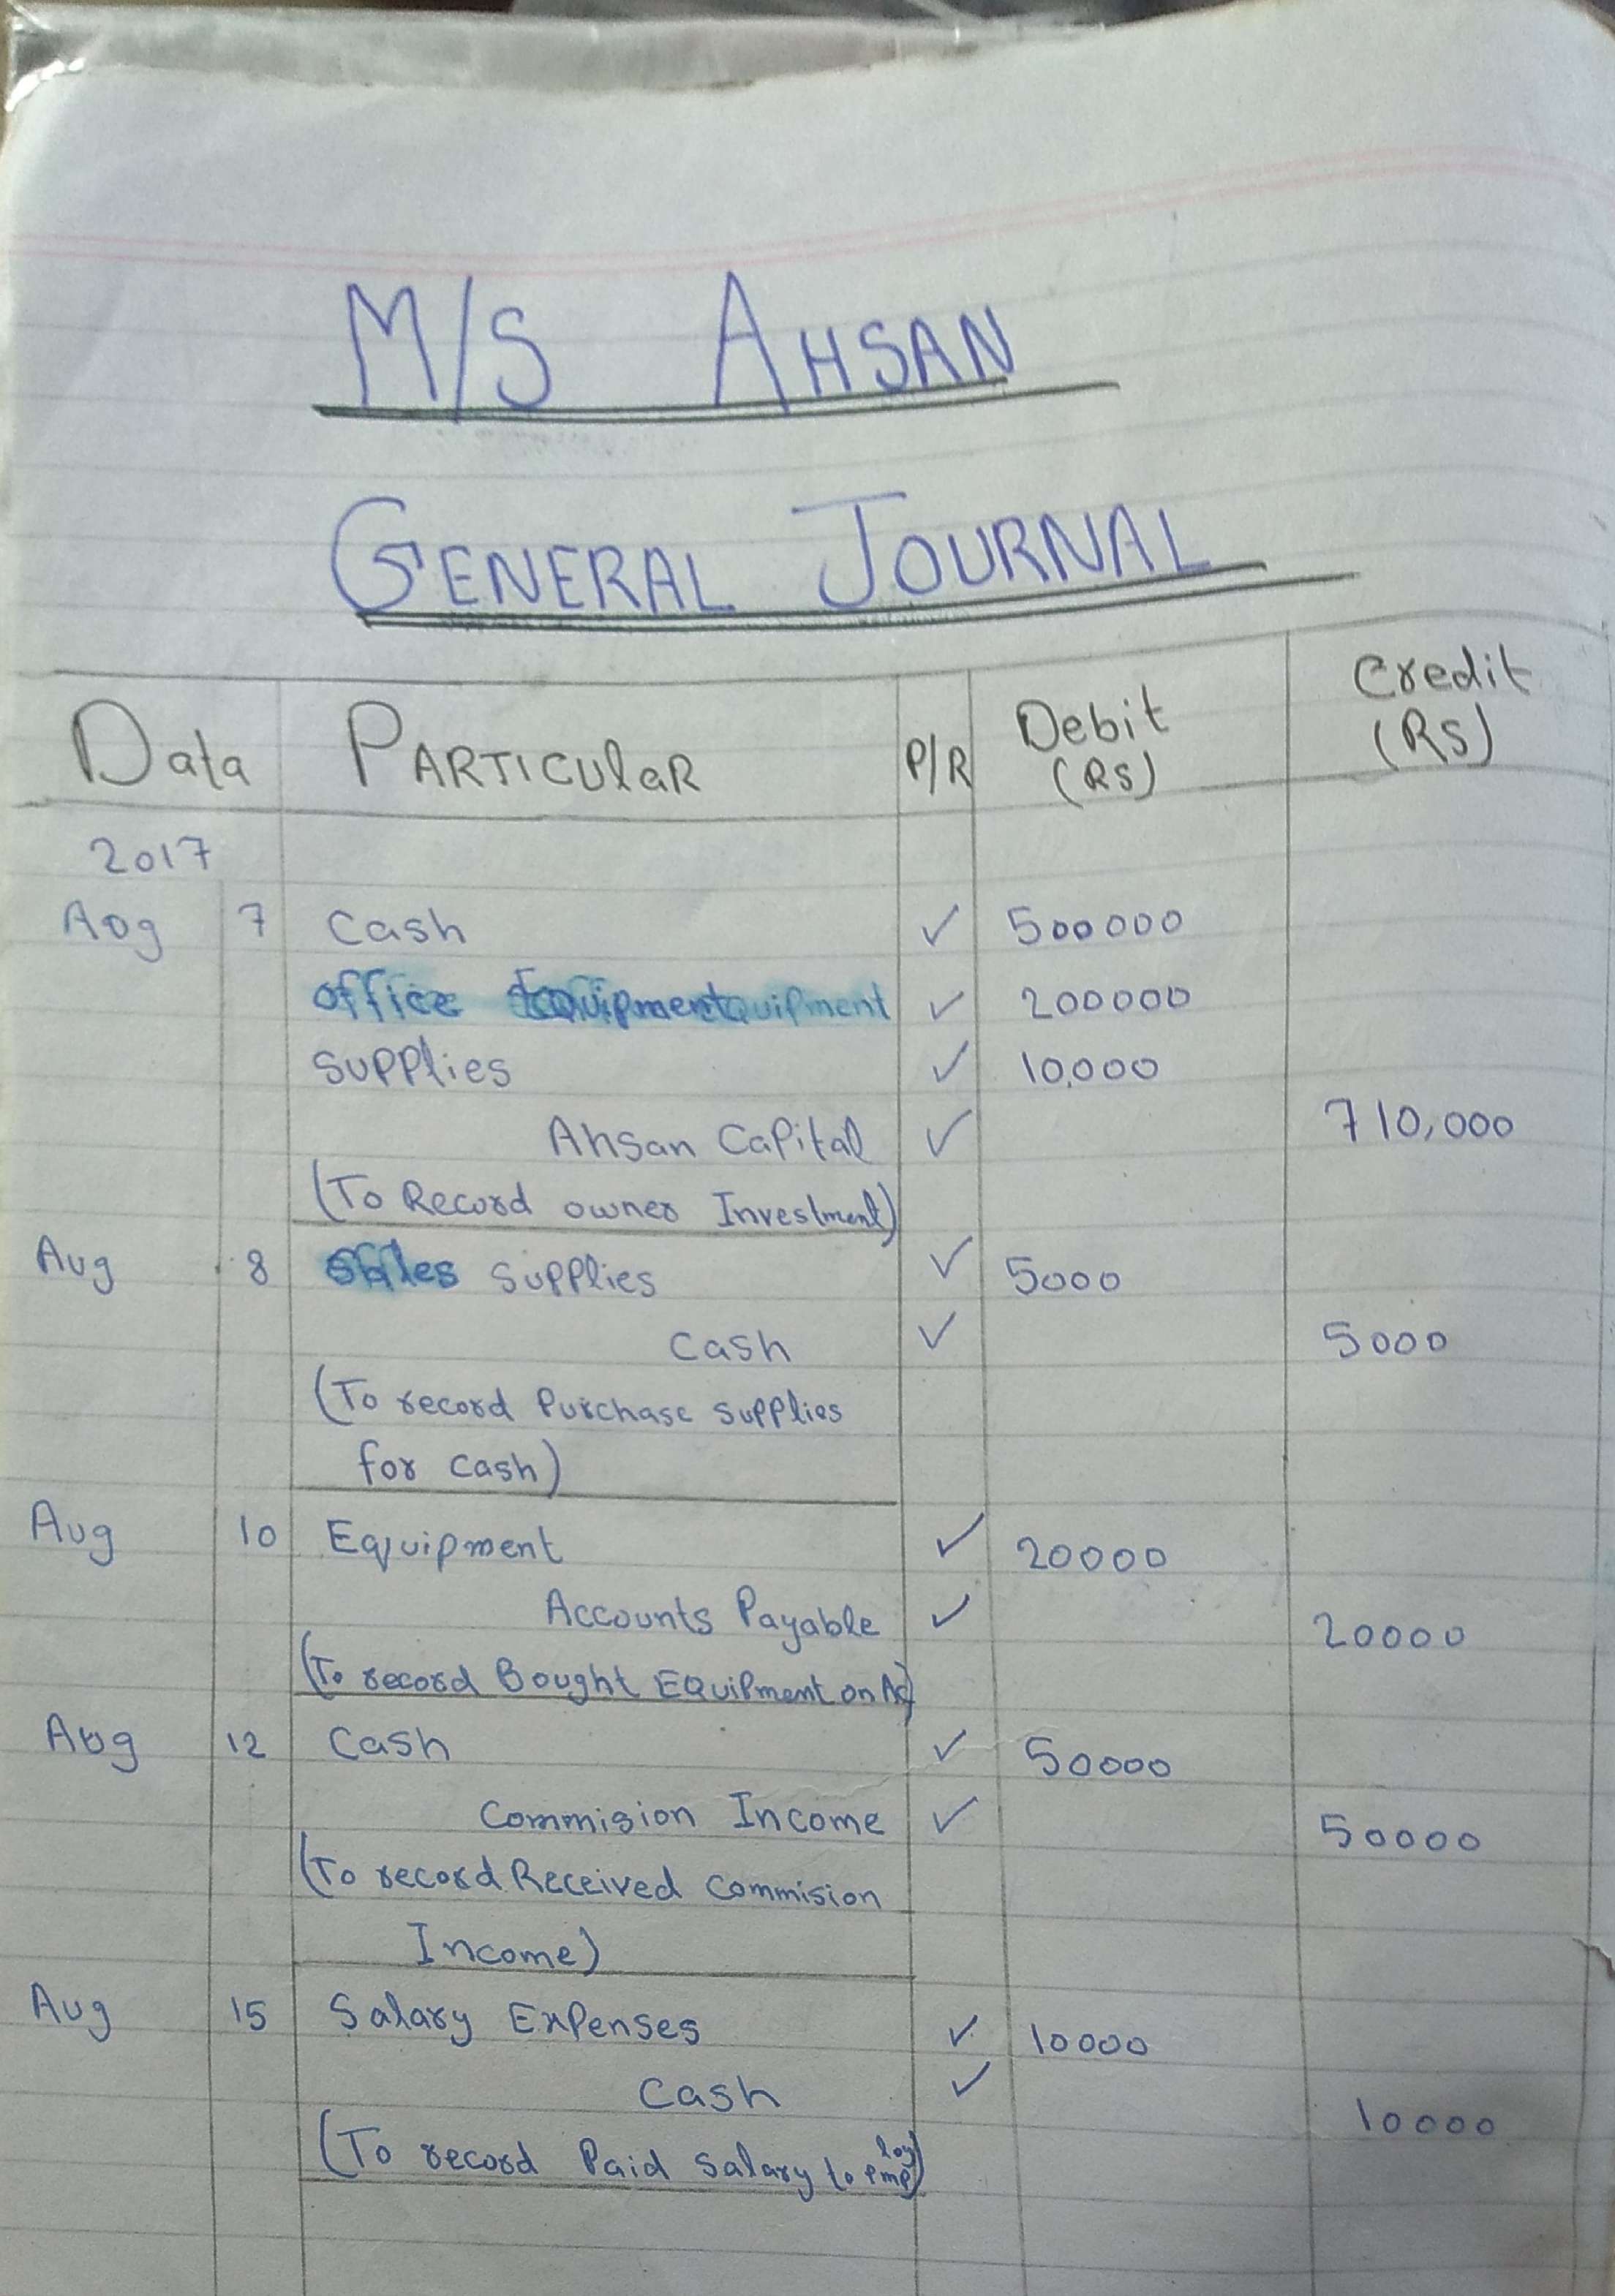 M/S AHSAN
GENERAL JOURNAL
Data PARTICUlaR P/R Debit (RS) Credit (RS)
2017
Aug 7 Cash ✓ 500000
office Equipment ✓ 200000
Supplies ✓ 10,000
Ahsan Capital ✓ 710,000
(To Record owner Investment)
Aug 8 Supplies ✓ 5000
Cash ✓ 5000
(To record Purchase Supplies
for Cash)
Aug 10 Equipment ✓ 20000
Accounts Payable ✓ 20000
(To record Bought Equipment on Ac)
Aug 12 Cash ✓ 50000
Commision Income ✓ 50000
(To record Received Commision
Income)
Aug 15 Salary Expenses ✓ 10000
Cash ✓ 10000
(To record Paid Salary to employ)